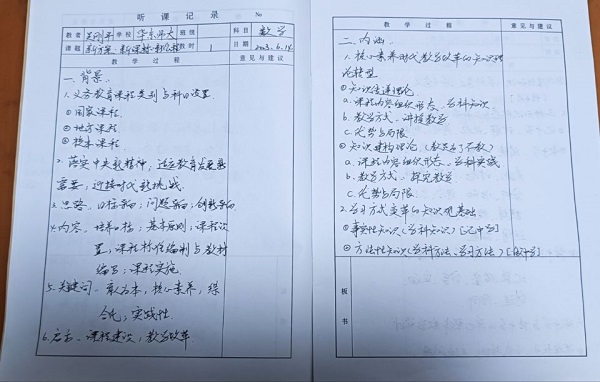 听课记录 №
教者 学校 华东师大 班级 科目 数学
课题 新方案·新课标· 教时 1 日期 2023.6.14
教学过程 意见与建议
一、背景
1. 义务教育课程类别与科目设置
① 国家课程
② 地方课程
③ 校本课程
2. 落实中央新精神；适应教育发展新
需要；迎接时代新挑战
3. 思路、目标导向；问题导向；创新导向
4. 内容、培养目标；基本原则；课程设
置；课程标准编制与教材
编写；课程实施
5. 关键词、育人为本，核心素养，综
合化，实践性
6. 启示、课程建设；教学改革
教学过程 意见与建议
二、内涵
1. 核心素养时代教学改革的知识理
论转型
① 知识传递理论
a. 课程内容组织形态、学科知识
b. 教学方式、讲授教学
c. 优势与局限
② 知识建构理论（教是为了不教）
a. 课程内容组织形态、学科实践
b. 教学方式、探究教学
c. 优势与局限
2. 学习方式变革的知识观基础
① 事实性知识（学科知识）[记中学]
② 方法性知识（学科方法、学习方法）[做中学]
板书